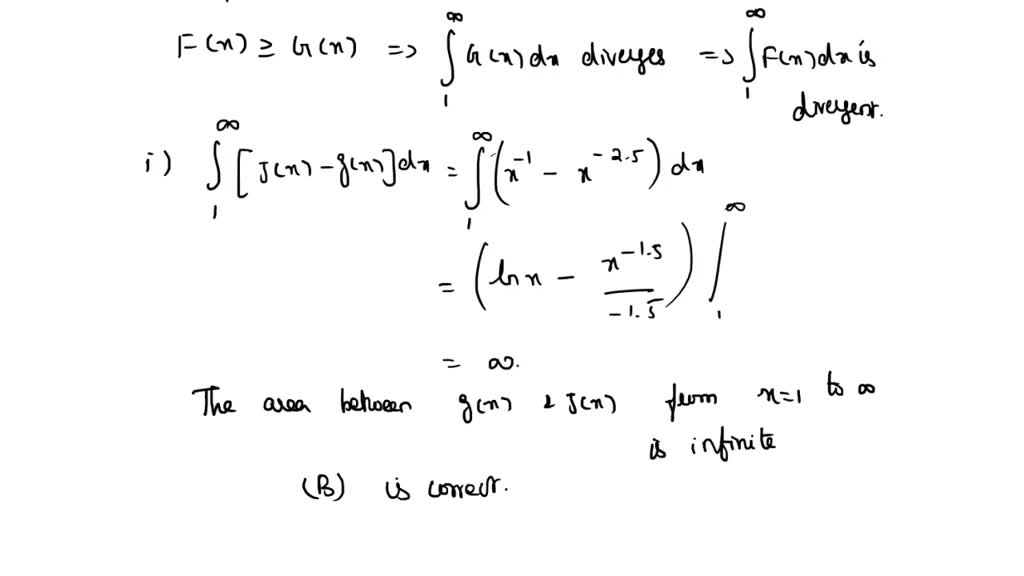 F(x) ≥ G(x) => ∫₁^∞ G(x) dx diverges => ∫₁^∞ F(x) dx is
divergent.
i) ∫₁^∞ [J(x) - g(x)] dx = ∫₁^∞ (x^-1 - x^-2.5) dx
= (ln x - x^-1.5 / -1.5) |₁^∞
= ∞.
The area between g(x) & J(x) from x=1 to ∞
is infinite
(B) is correct.